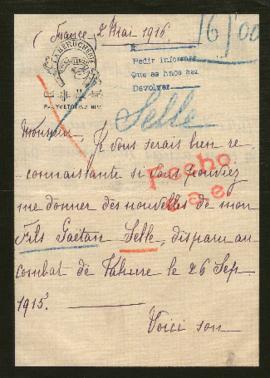 (France, 2 Mai 1916
Pedir informes
Que se hace aez
Devolver
Selle
Monsieur, Je vous serais bien re
connaissante si vous pouviez
me donner des nouvelles de mon
Fils Gaëtan Selle, disparu au
combat de Tahure le 26 Sep
1915.
Voici son